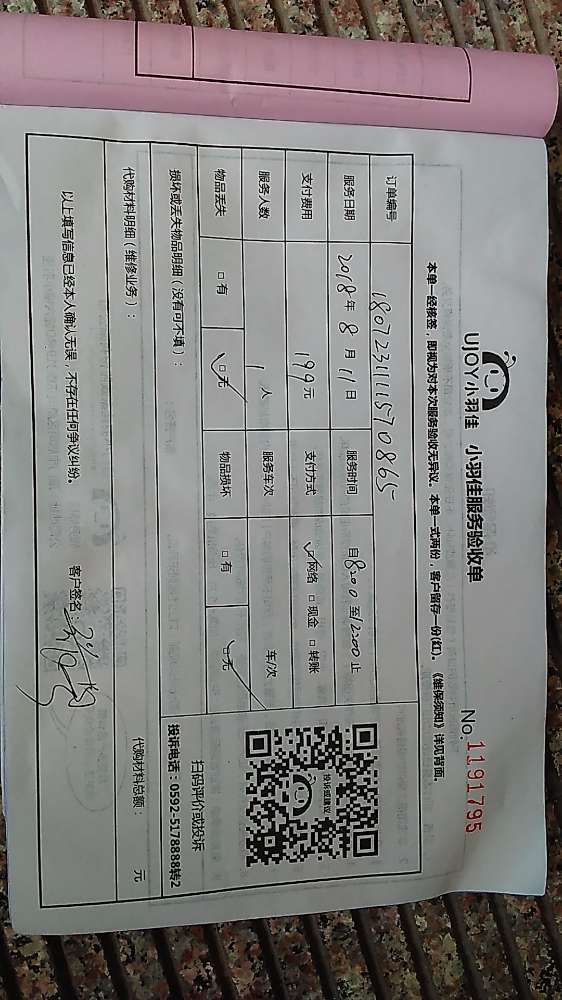 UJOY小羽佳 小羽佳服务验收单
No. 1191795
本单一经核签，即视为对本次服务验收无异议。本单一式两份，客户留存一份(红)。《维保须知》详见背面。
订单编号 180723111570865
服务日期 2018年8月11日 服务时间 自8:00至12:00止
支付费用 199元 支付方式 ☑网络 □现金 □转账
服务人数 1人 服务车次 车/次
物品丢失 □有 ☑无 物品损坏 □有 ☑无
投诉或建议
扫码评价或投诉
投诉电话：0592-5178888转2
损坏或丢失物品明细（没有可不填）：
代购材料明细（维修业务）： 代购材料总额： 元
以上填写信息已经本人确认无误，不存在任何争议纠纷。 客户签名：